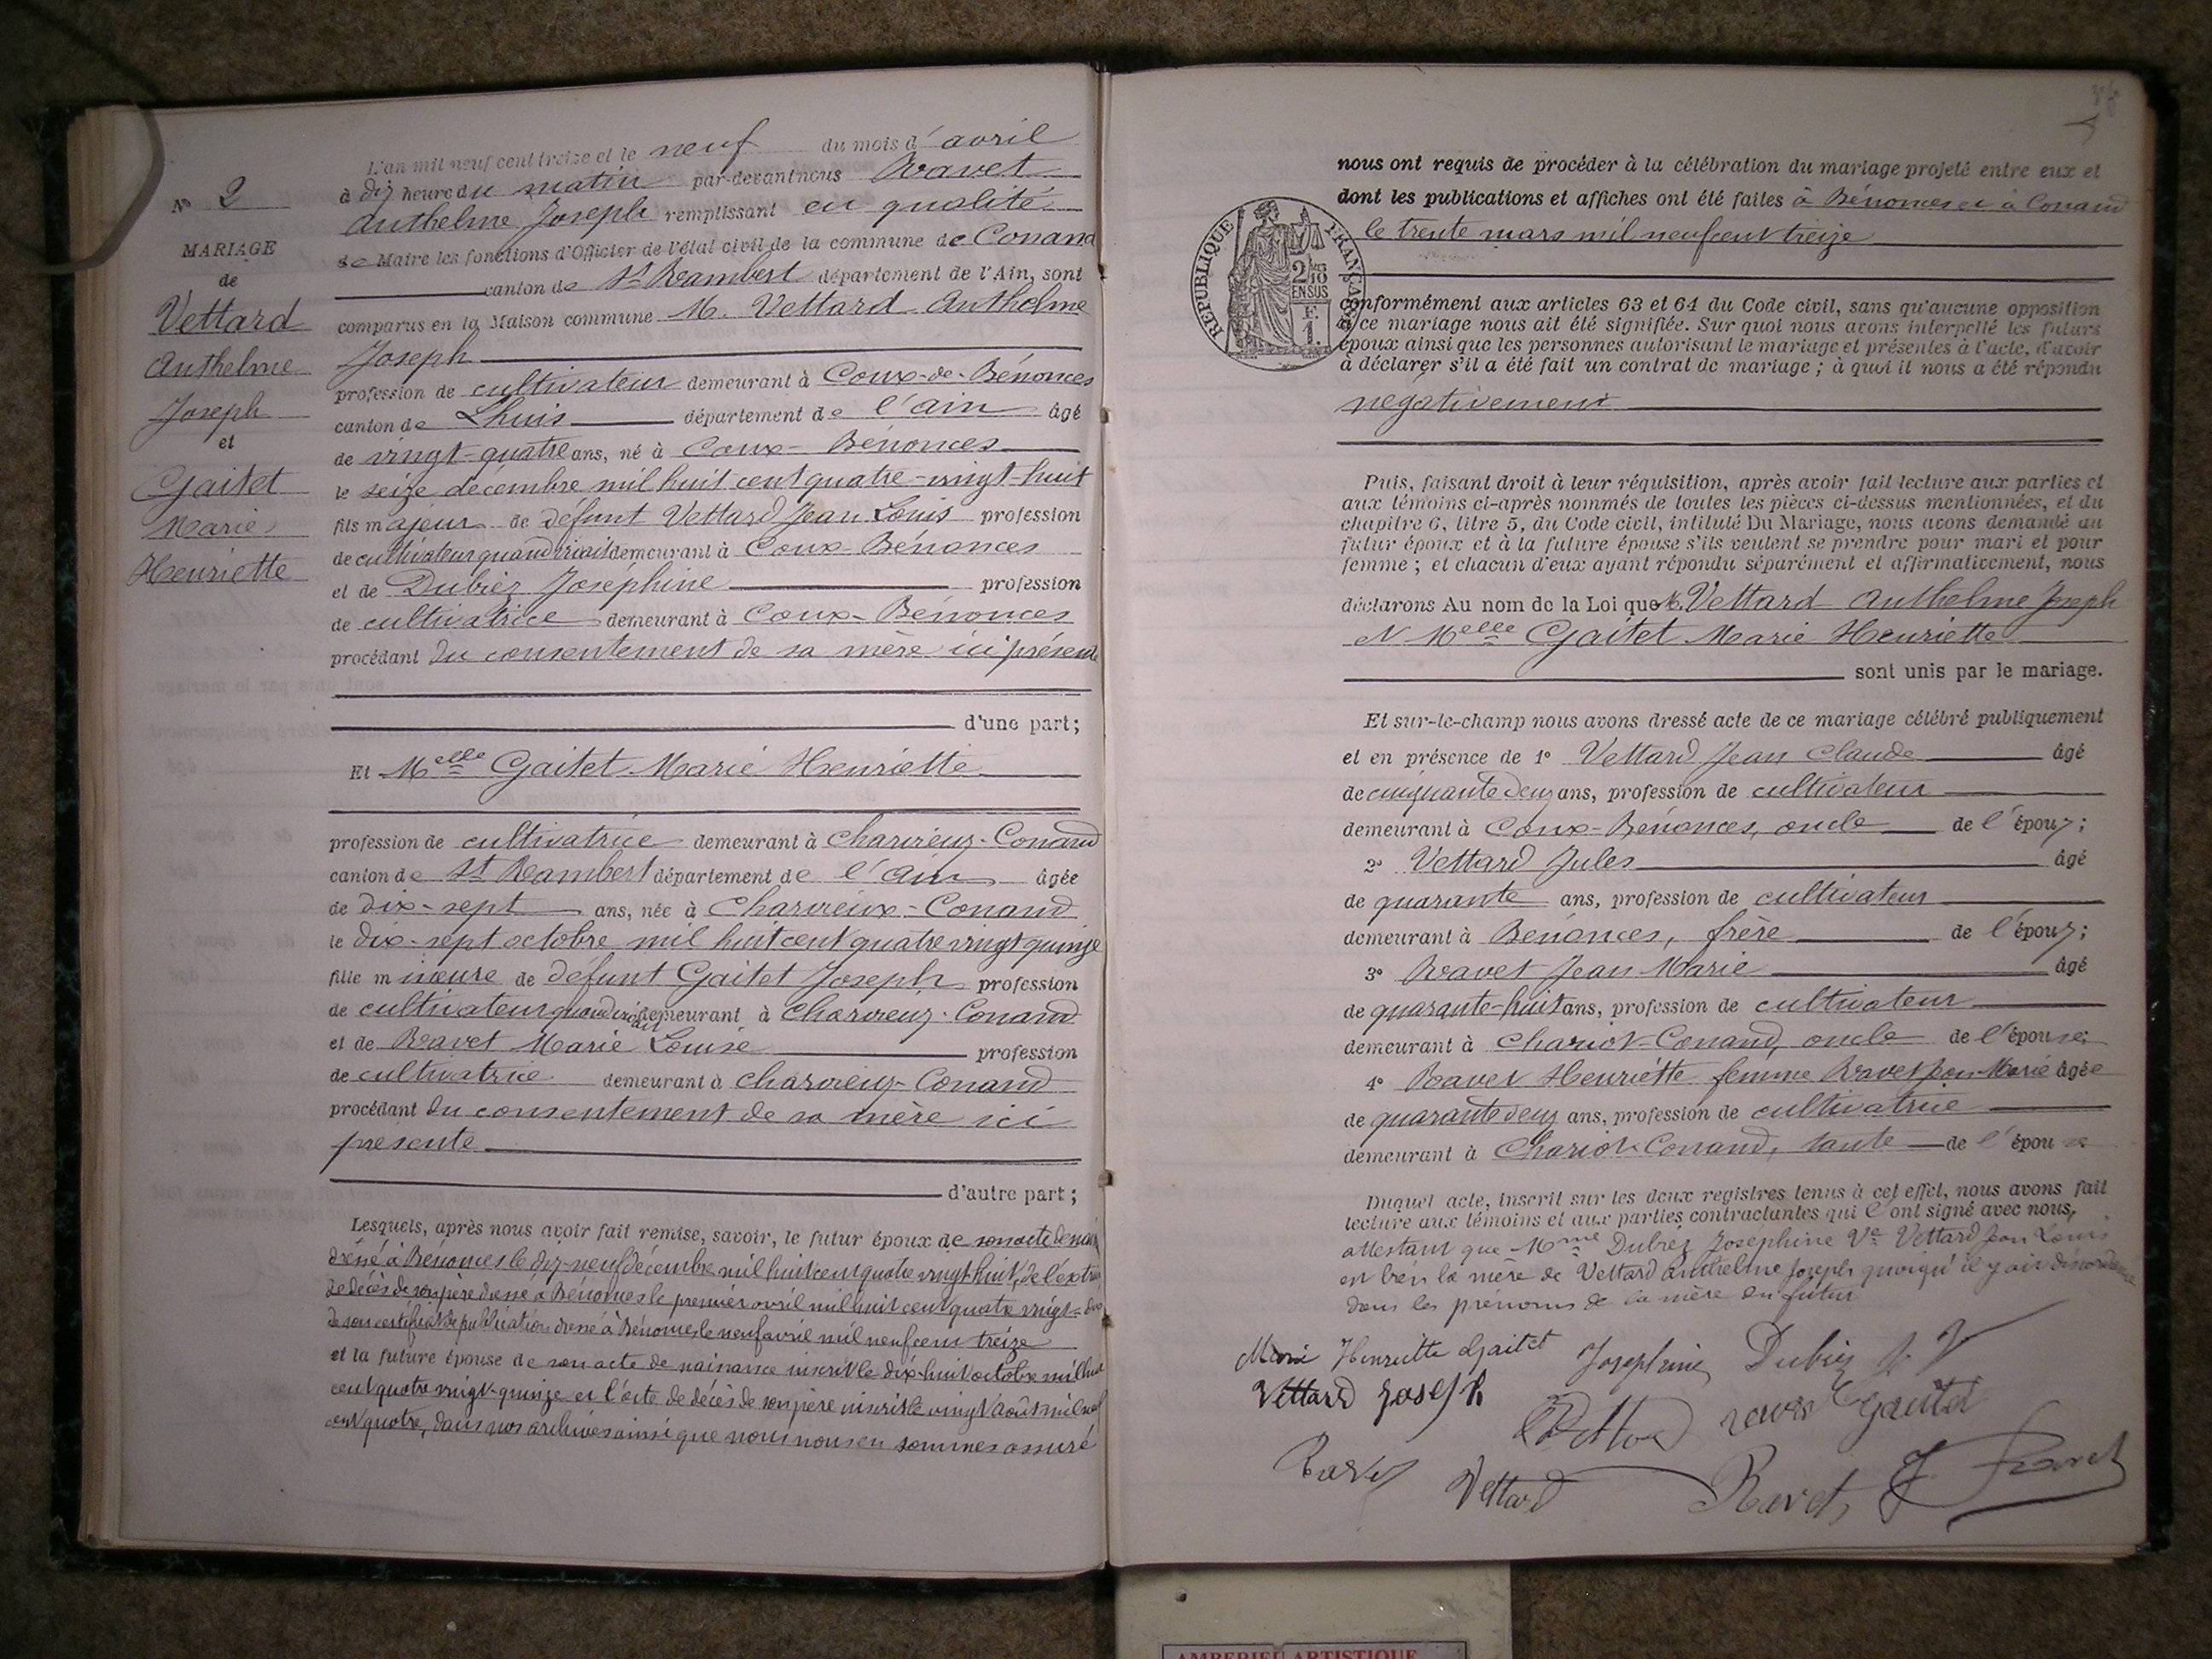 L'an mil neuf cent treize et le neuf du mois d'avril
à dix heure du matin par-devant nous Ravet
Anthelme Joseph remplissant en qualité
de Maire les fonctions d'Officier de l'état civil de la commune de Conand
canton de St Rambert département de l'Ain, sont
comparus en la Maison commune M. Vettard Anthelme
Joseph
profession de cultivateur demeurant à Coux-de-Bénonces
canton de Lhuis département de l'ain âgé
de vingt-quatre ans, né à Coux-Bénonces
le seize décembre mil huit cent quatre-vingt-huit
fils majeur de défunt Vettard Jean Louis profession
de cultivateur quand vivait demeurant à Coux-Bénonces
et de Dubiez Joséphine profession
de cultivatrice demeurant à Coux-Bénonces
procédant du consentement de sa mère ici présente
d'une part;
Et Melle Gaitet Marie Henriette
profession de cultivatrice demeurant à Charvieux-Conand
canton de St Rambert département de l'Ain âgée
de dix-sept ans, née à Charvieux-Conand
le dix-sept octobre mil huit cent quatre vingt quinze
fille mineure de défunt Gaitet Joseph profession
de cultivateur quand vivait demeurant à Charvieux-Conand
et de Ravet Marie Louise profession
de cultivatrice demeurant à Charvieux-Conand
procédant du consentement de sa mère ici
présente
d'autre part;
Lesquels, après nous avoir fait remise, savoir, le futur époux de son acte de
dressé à Bénonces le dix-neuf décembre mil huit cent quatre vingt-huit, de l'extrait
de décès de son père dressé à Bénonces le premier avril mil huit cent quatre vingt-
de son certificat de publication dressé à Bénonces le neuf avril mil neuf cent treize
et la future épouse de son acte de naissance inscrit le dix-huit octobre mil huit
cent quatre vingt-quinze et l'acte de décès de son père inscrit le vingt août mil neuf
cent quatre, dans nos archives ainsi que nous nous en sommes assuré
No 2
MARIAGE
de
Vettard
Anthelme
Joseph
et
Gaitet
Marie
Henriette
nous ont requis de procéder à la célébration du mariage projeté entre eux et
dont les publications et affiches ont été faites à Bénonces et à Conand
le trente mars mil neuf cent treize
RÉPUBLIQUE FRANÇAISE
2/10
EN SUS
F.
1.
conformément aux articles 63 et 64 du Code civil, sans qu'aucune opposition
à ce mariage nous ait été signifiée. Sur quoi nous avons interpellé les futurs
époux ainsi que les personnes autorisant le mariage et présentes à l'acte, d'avoir
à déclarer s'il a été fait un contrat de mariage ; à quoi il nous a été répondu
négativement
Puis, faisant droit à leur réquisition, après avoir fait lecture aux parties et
aux témoins ci-après nommés de toutes les pièces ci-dessus mentionnées, et du
chapitre 6, titre 5, du Code civil, intitulé Du Mariage, nous avons demandé au
futur époux et à la future épouse s'ils veulent se prendre pour mari et pour
femme ; et chacun d'eux ayant répondu séparément et affirmativement, nous
déclarons Au nom de la Loi que M. Vettard Anthelme Joseph
et Melle Gaitet Marie Henriette
sont unis par le mariage.
Et sur-le-champ nous avons dressé acte de ce mariage célébré publiquement
et en présence de 1° Vettard Jean Claude âgé
de cinquante deux ans, profession de cultivateur
demeurant à Coux-Bénonces, oncle de l'époux;
2° Vettard Jules âgé
de quarante ans, profession de cultivateur
demeurant à Bénonces, frère de l'époux;
3° Ravet Jean Marie âgé
de quarante-huit ans, profession de cultivateur
demeurant à Chariot-Conand, oncle de l'épouse;
4° Ravet Henriette femme Ravet Jean-Marie âgée
de quarante deux ans, profession de cultivatrice
demeurant à Chariot-Conand, tante de l'épouse
Duquel acte, inscrit sur les deux registres tenus à cet effet, nous avons fait
lecture aux témoins et aux parties contractantes qui l'ont signé avec nous,
attestant que Mme Dubiez Joséphine Ve Vettard Jean Louis
est bien la mère de Vettard Anthelme Joseph quoiqu'il y ait
dans les prénoms de la mère du futur
Marie Henriette Gaitet Joséphine Dubiez
Vettard Joseph Gaitet
Vettard Ravet J Ravet
AMBERIEU ARTISTIQUE